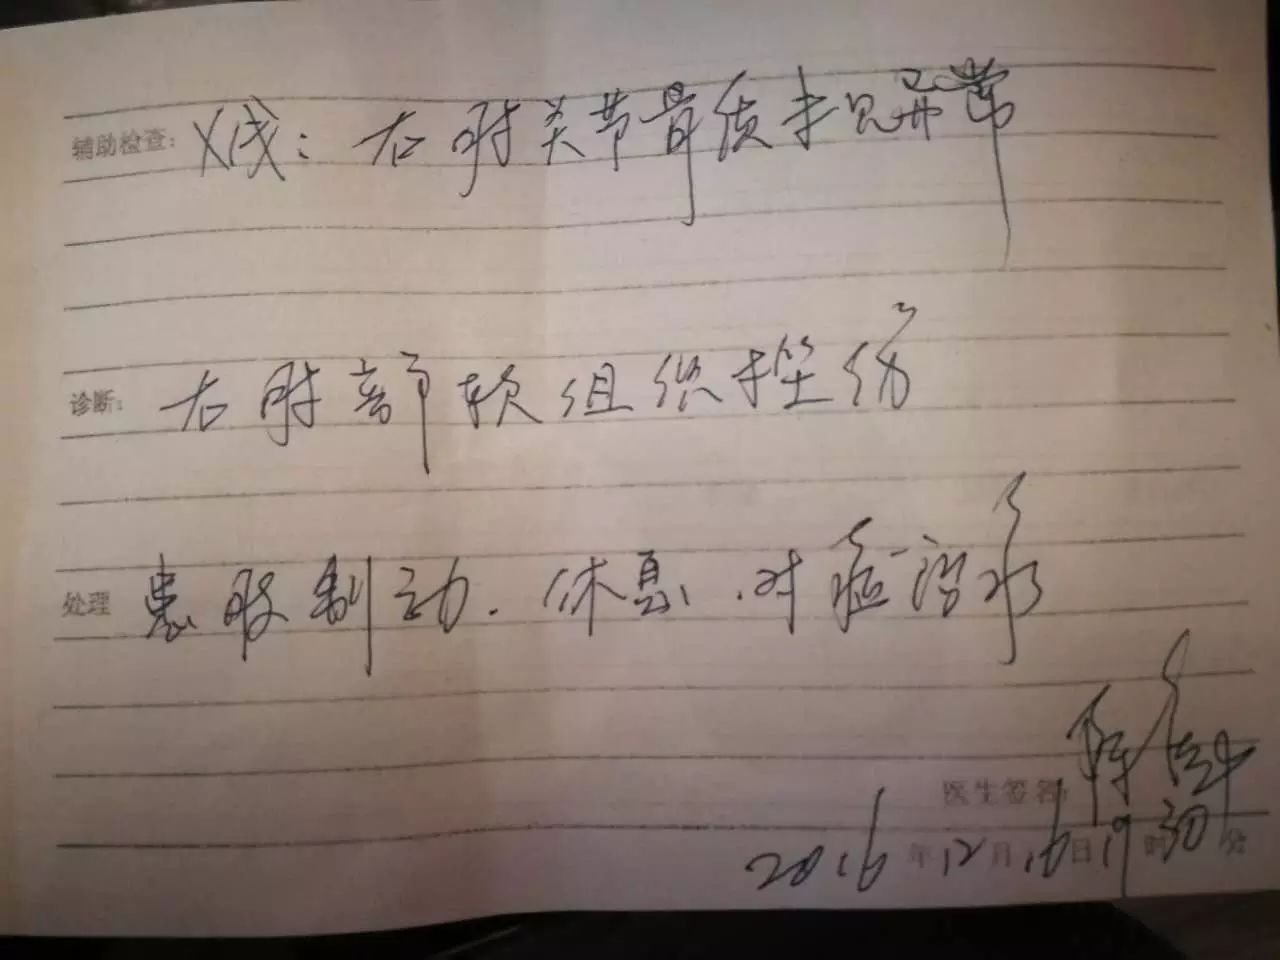 辅助检查: X线: 右肘关节骨质未见异常
诊断: 右肘部软组织挫伤
处理 患肢制动. 休息. 对症治疗
医生签名: 陈
2016年12月16日19时30分